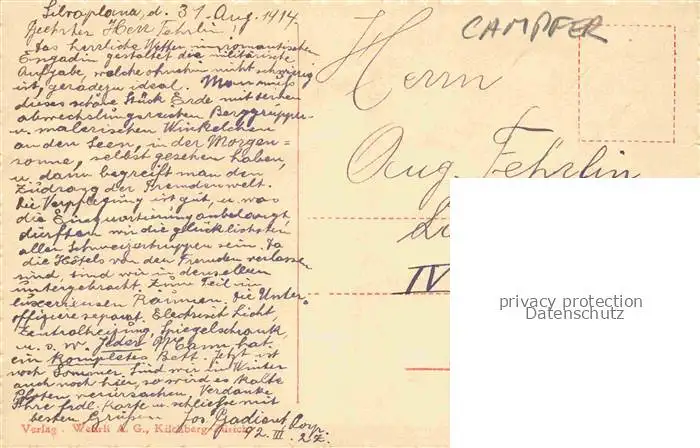 Silvaplana, d. 31. Aug. 1914.
Geehrter Herr Fehrlin!
Das herrliche Wetter im romantischen
Engadin gestaltet die militärische
Aufgabe, welche ohnehin nicht schwierig
ist, geradezu ideal. Man muss
dieses schöne Stück Erde mit seinen
abwechslungsreichen Berggruppen
u. malerischen Winkelchen
an den Seen, in der Morgen=
sonne, selbst gesehen haben,
u. dann begreift man den
Zudrang der Fremdenwelt.
Die Verpflegung ist gut, u. was
die Einquartierung anbelangt,
dürften wir die glücklichsten
aller Schweizertruppen sein. Da
die Hôtels von den Fremden verlassen
sind, sind wir in denselben
untergebracht, zum Teil in
luxeriensen Räumen. Die Unter-
offiziere separat. Electrisch Licht,
Zentralheizung, Spiegelschrank,
u. s. w. Jeder Mann hat
ein komplettes Bett. Jetzt ist
noch Sommer. Sind wir im Winter
auch noch hier, so wird es kalte
Pfoten verursachen. Verdanke
Ihre frdl. Karte u. schliesse mit
besten Grüssen Jos. Gadient Korp.
92. III. 2.Z.
Verlag. Wehrli A. G., Kilchberg-Zürich
CAMPFER
Herrn
Aug. Fehrlin
IV
privacy protection
Datenschutz